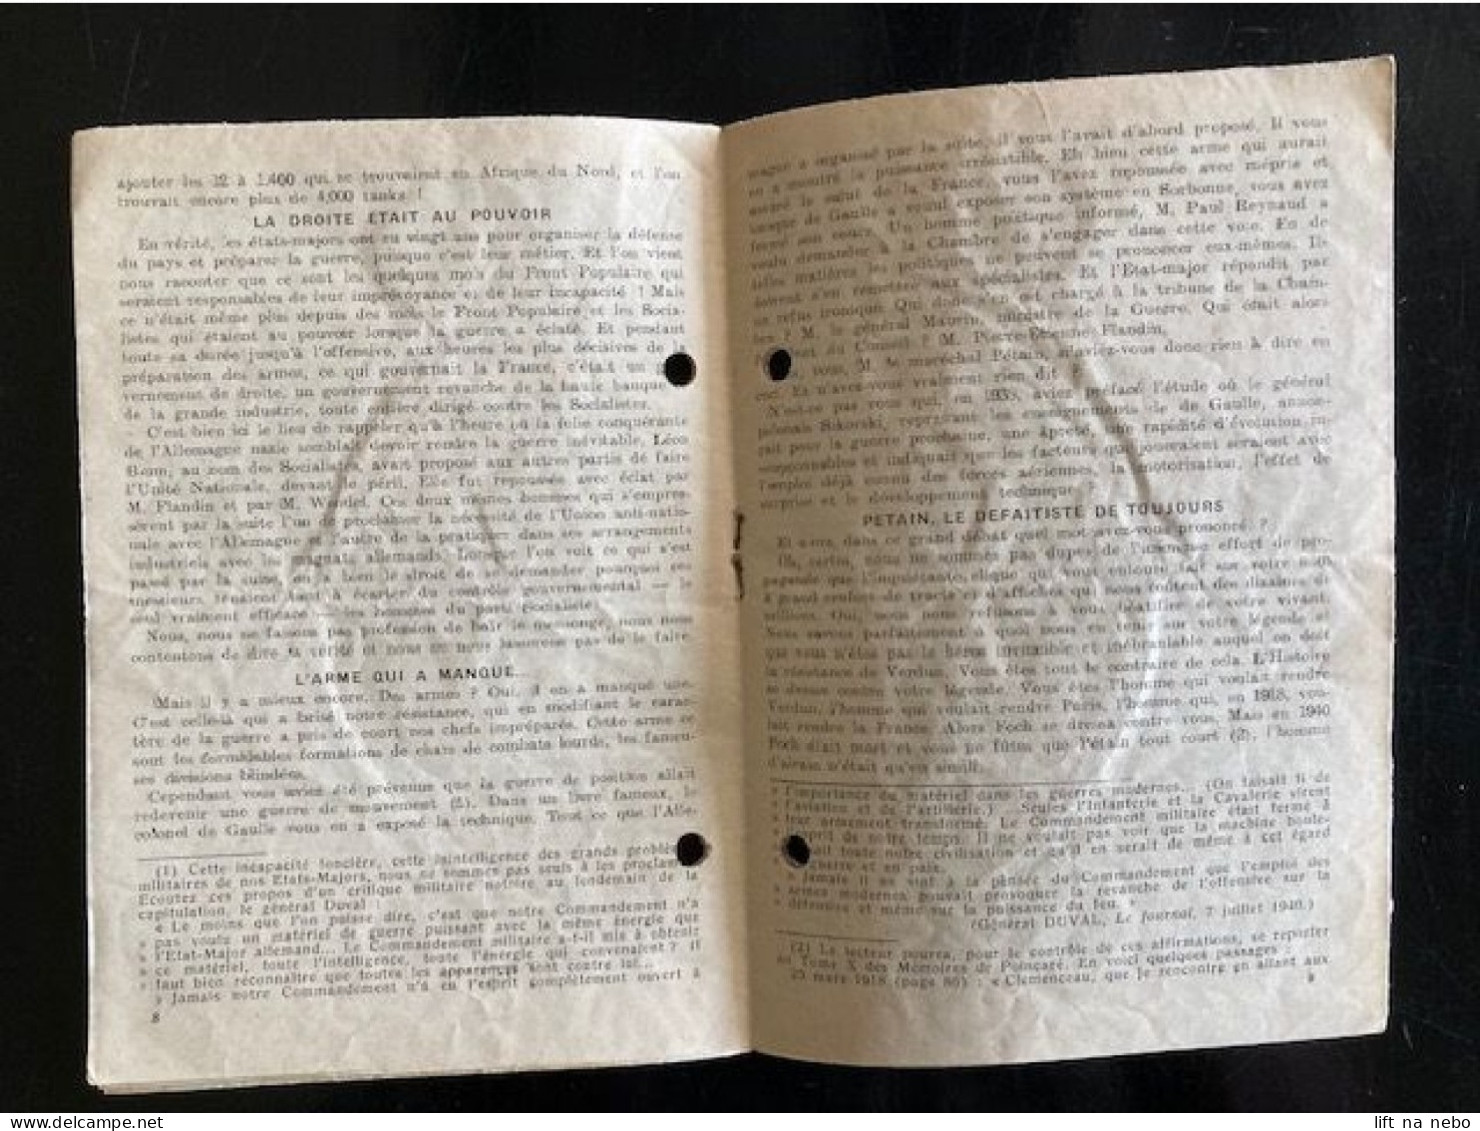 ajouter les 12 à 1.400 qui se trouvaient en Afrique du Nord, et l'on
trouvait encore plus de 4,000 tanks !
LA DROITE ETAIT AU POUVOIR
En vérité, les états-majors ont eu vingt ans pour organiser la défense
du pays et préparer la guerre, puisque c'est leur métier. Et l'on vient
nous raconter que ce sont les quelques mois du Front Populaire qui
seraient responsables de leur imprévoyance et de leur incapacité ! Mais
ce n'était même plus depuis des mois le Front Populaire et les Socia-
listes qui étaient au pouvoir lorsque la guerre a éclaté. Et pendant
toute sa durée jusqu'à l'offensive, aux heures les plus décisives de la
préparation des armes, ce qui gouvernait la France, c'était un
vernement de droite, un gouvernement revanche de la haute banque
de la grande industrie, toute entière dirigé contre les Socialistes.
C'est bien ici le lieu de rappeler qu'à l'heure où la folie conquérante
de l'Allemagne nazie semblait devoir rendre la guerre inévitable, Léon
Blum, au nom des Socialistes, avait proposé aux autres partis de faire
l'Unité Nationale, devant le péril. Elle fut repoussée avec éclat par
M. Flandin et par M. Wendel. Ces deux mêmes hommes qui s'empres-
sèrent par la suite l'un de proclamer la nécessité de l'Union anti-natio-
nale avec l'Allemagne et l'autre de la pratiquer dans ses arrangements
industriels avec les magnats allemands. Lorsque l'on voit ce qui s'est
passé par la suite, on a bien le droit de se demander pourquoi ces
messieurs tenaient tant à écarter du contrôle gouvernemental — le
seul vraiment efficace — les hommes du parti Socialiste.
Nous, nous ne faisons pas profession de haïr le mensonge, nous nous
contentons de dire la vérité et nous ne nous lasserons pas de le faire.
L'ARME QUI A MANQUE...
Mais il y a mieux encore. Des armes ? Oui, il en a manqué une.
C'est celle-là qui a brisé notre résistance, qui en modifiant le carac-
tère de la guerre a pris de court nos chefs impréparés. Cette arme ce
sont les formidables formations de chars de combats lourds, les fameu-
ses divisions blindées.
Cependant vous aviez été prévenus que la guerre de position allait
redevenir une guerre de mouvement (2). Dans un livre fameux, le
colonel de Gaulle vous en a exposé la technique. Tout ce que l'Alle-
(1) Cette incapacité foncière, cette inintelligence des grands problèmes
militaires de nos Etats-Majors, nous ne sommes pas seuls à les proclamer.
Ecoutez ces propos d'un critique militaire notoire au lendemain de la
capitulation, le général Duval :
« Le moins que l'on puisse dire, c'est que notre Commandement n'a
» pas voulu un matériel de guerre puissant avec la même énergie que
» l'Etat-Major allemand... Le Commandement militaire a-t-il mis à obtenir
» ce matériel, toute l'intelligence, toute l'énergie qui convenaient ? Il
» faut bien reconnaître que toutes les apparences sont contre lui...
» Jamais notre Commandement n'a eu l'esprit complètement ouvert à
8
magne a organisé par la suite, il vous l'avait d'abord proposé. Il vous
en a montré la puissance irrésistible. Eh bien cette arme qui aurait
assuré le salut de la France, vous l'avez repoussée avec mépris et
lorsque de Gaulle a voulu exposer son système en Sorbonne, vous avez
fermé son cours. Un homme politique informé, M. Paul Reynaud a
voulu demander à la Chambre de s'engager dans cette voie. En de
telles matières les politiques ne peuvent se prononcer eux-mêmes. Ils
doivent s'en remettre aux spécialistes. Et l'Etat-major répondit par
un refus ironique. Qui donc s'en est chargé à la tribune de la Cham-
bre ? M. le général Maurin, ministre de la Guerre. Qui était alors
du Conseil ? M. Pierre-Etienne Flandin.
vous, M. le maréchal Pétain, n'aviez-vous donc rien à dire en
Et n'avez-vous vraiment rien dit ?
N'est-ce pas vous qui, en 1935, aviez préfacé l'étude où le général
polonais Sikorski, reprenant les enseignements de de Gaulle, annon-
çait pour la guerre prochaine, une âpreté, une rapidité d'évolution in-
soupçonnables et indiquait que les facteurs qui joueraient seraient avec
l'emploi déjà connu des forces aériennes, la motorisation, l'effet de
surprise et le développement technique ?
PETAIN, LE DEFAITISTE DE TOUJOURS
Et alors, dans ce grand débat quel mot avez-vous prononcé ?
Ah, certes, nous ne sommes pas dupes de l'immense effort de pro-
pagande que l'inquiétante clique qui vous entoure fait sur votre nom
à grand renfort de tracts et d'affiches qui nous coûtent des dizaines de
millions. Oui, nous nous refusons à vous béatifier de votre vivant.
Nous savons parfaitement à quoi nous en tenir sur votre légende et
que vous n'êtes pas le héros invincible et inébranlable auquel on doit
la résistance de Verdun. Vous êtes tout le contraire de cela. L'Histoire
se dresse contre votre légende. Vous êtes l'homme qui voulait rendre
Verdun, l'homme qui voulait rendre Paris, l'homme qui, en 1918, vou-
lait rendre la France. Alors Foch se dressa contre vous. Mais en 1940
Foch était mort et vous ne fûtes que Pétain tout court (2), l'homme
d'airain n'était qu'en simili.
» l'importance du matériel dans les guerres modernes... (On faisait fi de
» l'aviation et de l'artillerie.) ...Seules l'Infanterie et la Cavalerie virent
» leur armement transformé. Le Commandement militaire était fermé à
» l'esprit de notre temps. Il ne voulait pas voir que la machine boule-
» toute notre civilisation et qu'il en serait de même à cet égard
» guerre et en paix.
» Jamais il ne vint à la pensée du Commandement que l'emploi des
» armes modernes pouvait provoquer la revanche de l'offensive sur la
» défensive et même sur la puissance du feu. »
(Général DUVAL, Le Journal, 7 juillet 1940.)
(2) Le lecteur pourra, pour le contrôle de ces affirmations, se reporter
au Tome X des Mémoires de Poincaré. En voici quelques passages :
25 mars 1918 (page 86) : « Clemenceau, que je rencontre en allant aux
9
lift na nebo